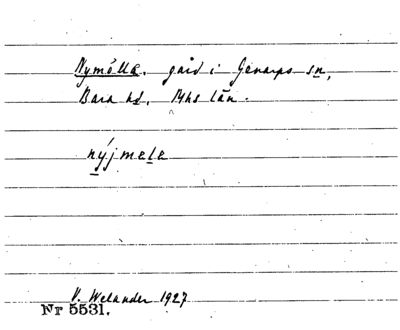 Nymölla. gård i Genarps sn,
Bara hd. Mhs län.
nýjmala
V. Welander 1927
Nr 5531.